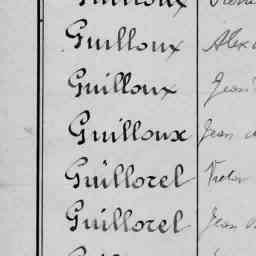 Guilloux
Guilloux Alex
Guilloux Jean
Guilloux Jean
Guillorel Victor
Guillorel Jean